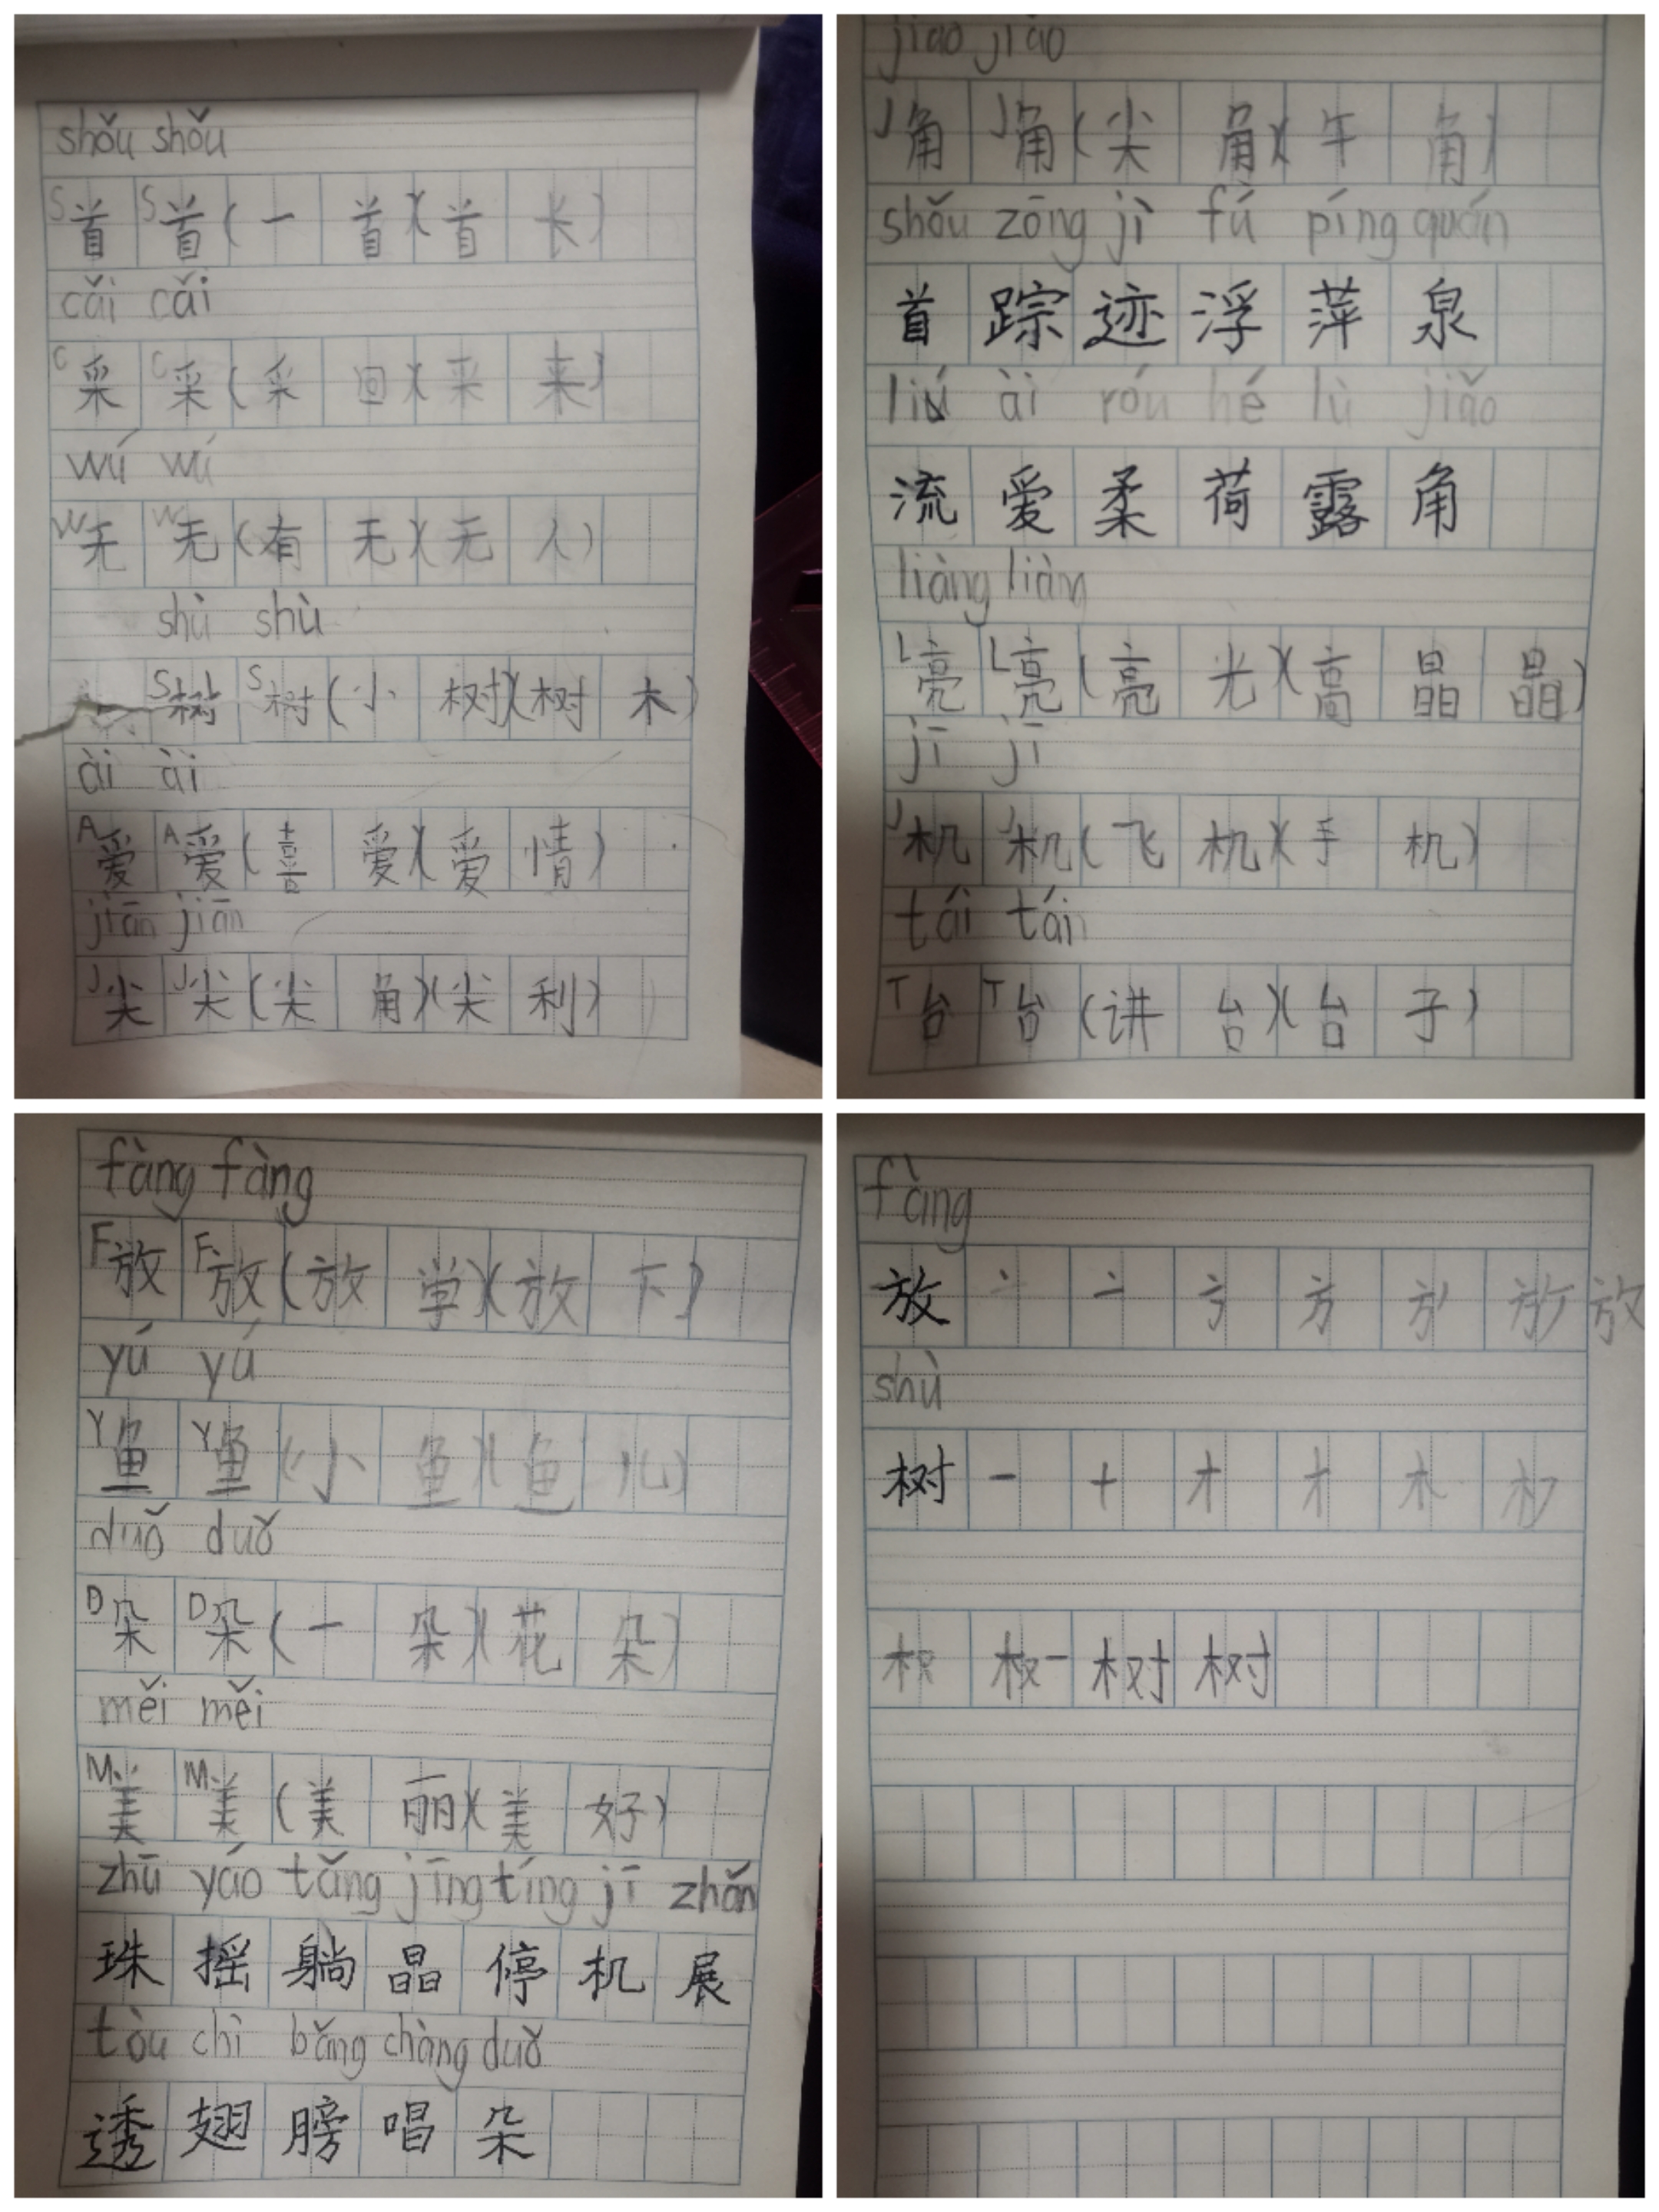 shǒu shǒu
S首 S首(一首)(首长)
cǎi cǎi
C采 C采(采回)(采来)
wú wú
W无 W无(有无)(无人)
shù shù
S树 S树(小树)(树木)
ài ài
A爱 A爱(喜爱)(爱情)
jiān jiān
J尖 J尖(尖角)(尖利)
jiǎo jiǎo
J角 J角(尖角)(牛角)
shǒu zōng jì fú píng quán
首踪迹浮萍泉
liú ài róu hé lù jiǎo
流爱柔荷露角
liàng liàng
L亮 L亮(亮光)(高晶晶)
jī jī
J机 J机(飞机)(手机)
tái tái
T台 T台(讲台)(台子)
fàng fàng
F放 F放(放学)(放下)
yú yú
Y鱼 Y鱼(小鱼)(鱼儿)
duǒ duǒ
D朵 D朵(一朵)(花朵)
měi měi
M美 M美(美丽)(美好)
zhū yáo tǎng jīng tíng jī zhǎn
珠摇躺晶停机展
tòu chì bǎng chàng duǒ
透翅膀唱朵
fàng
放 亠 方 方 放
shù
树 一 十 才 木
权 树 树